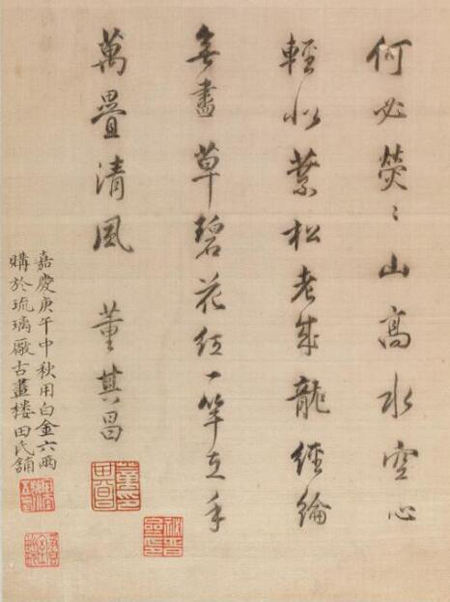 何必熒〻山高水空心
輕似葉松老成龍經綸
無盡草碧花紅一竿在手
萬疊清風 董其昌
嘉慶庚午中秋用白金六兩
購於琉璃廠古畫樓田氏舖